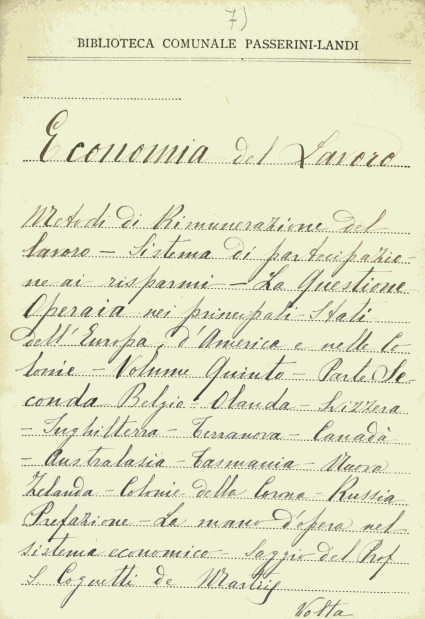 7)
BIBLIOTECA COMUNALE PASSERINI-LANDI
Economia del Lavoro
Metodi di Rimunerazione del
lavoro - Sistema di partecipazio-
ne ai risparmi - La Questione
Operaia nei principali Stati
dell'Europa, d'America e nelle Co-
lonie - Volume Quinto - Parte Se-
conda Belgio - Olanda - Svizzera
- Inghilterra - Terranova - Canadà
- Australasia - Tasmania - Nuova
Zelanda - Colonie della Corona - Russia
Prefazione - La mano d'opera nel
sistema economico - Saggio del Prof
S. Cognetti de Martiis
Volta